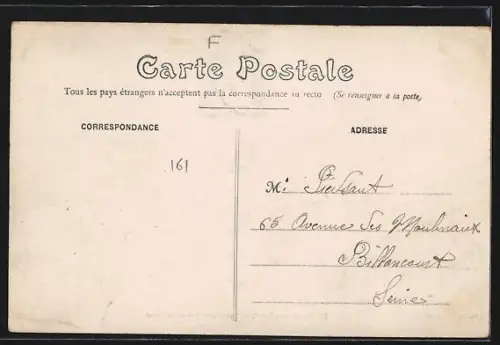 F
Carte Postale
Tous les pays étrangers n'acceptent pas la correspondance au recto (Se renseigner à la poste)
CORRESPONDANCE
ADRESSE
161
Mr
65 Avenue des Moulinaux
Billancourt
Seine